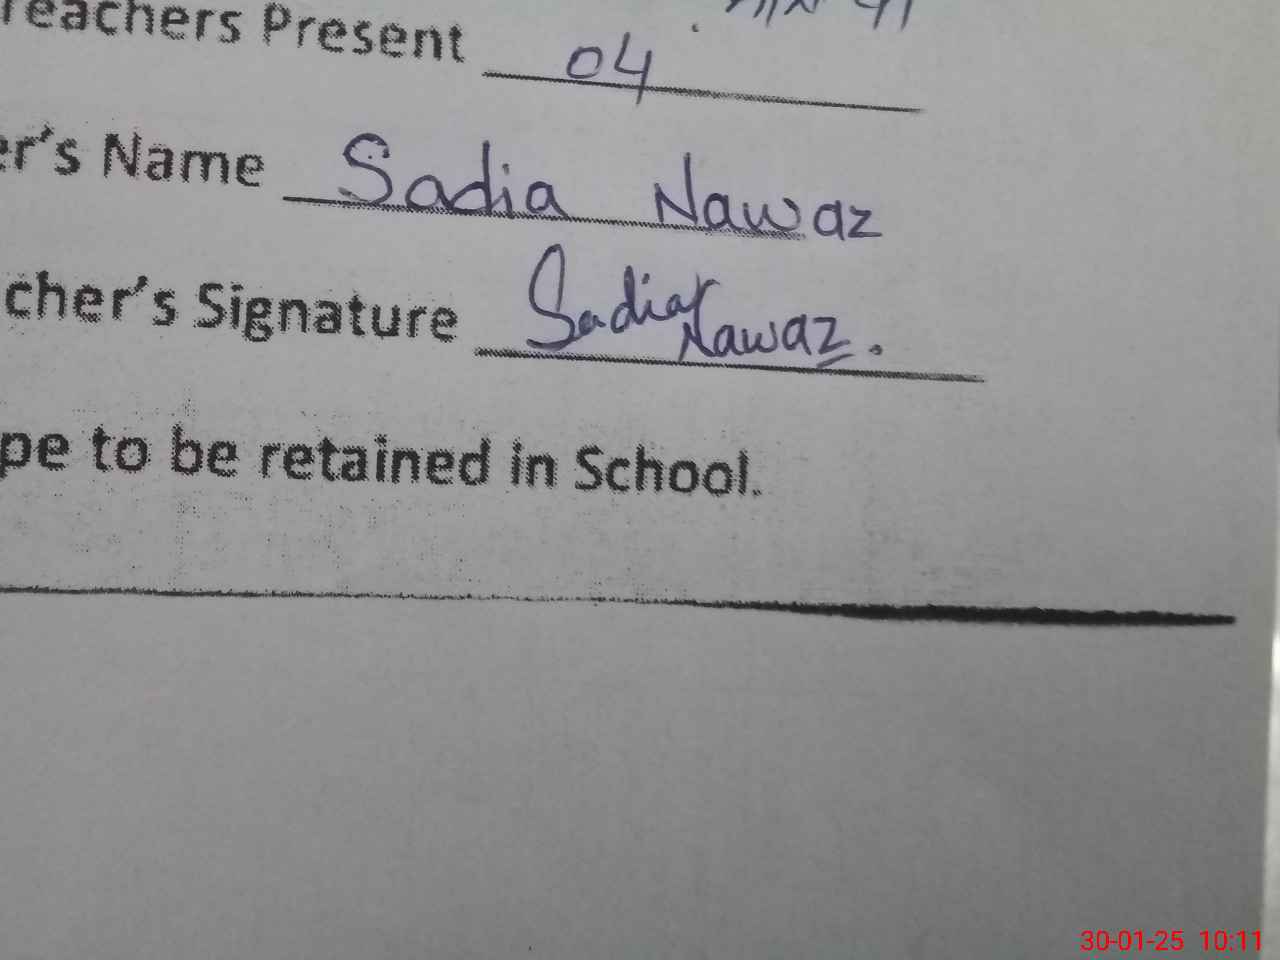 Teachers Present 04
er's Name Sadia Nawaz
cher's Signature Sadia Nawaz.
pe to be retained in School.
30-01-25 10:11